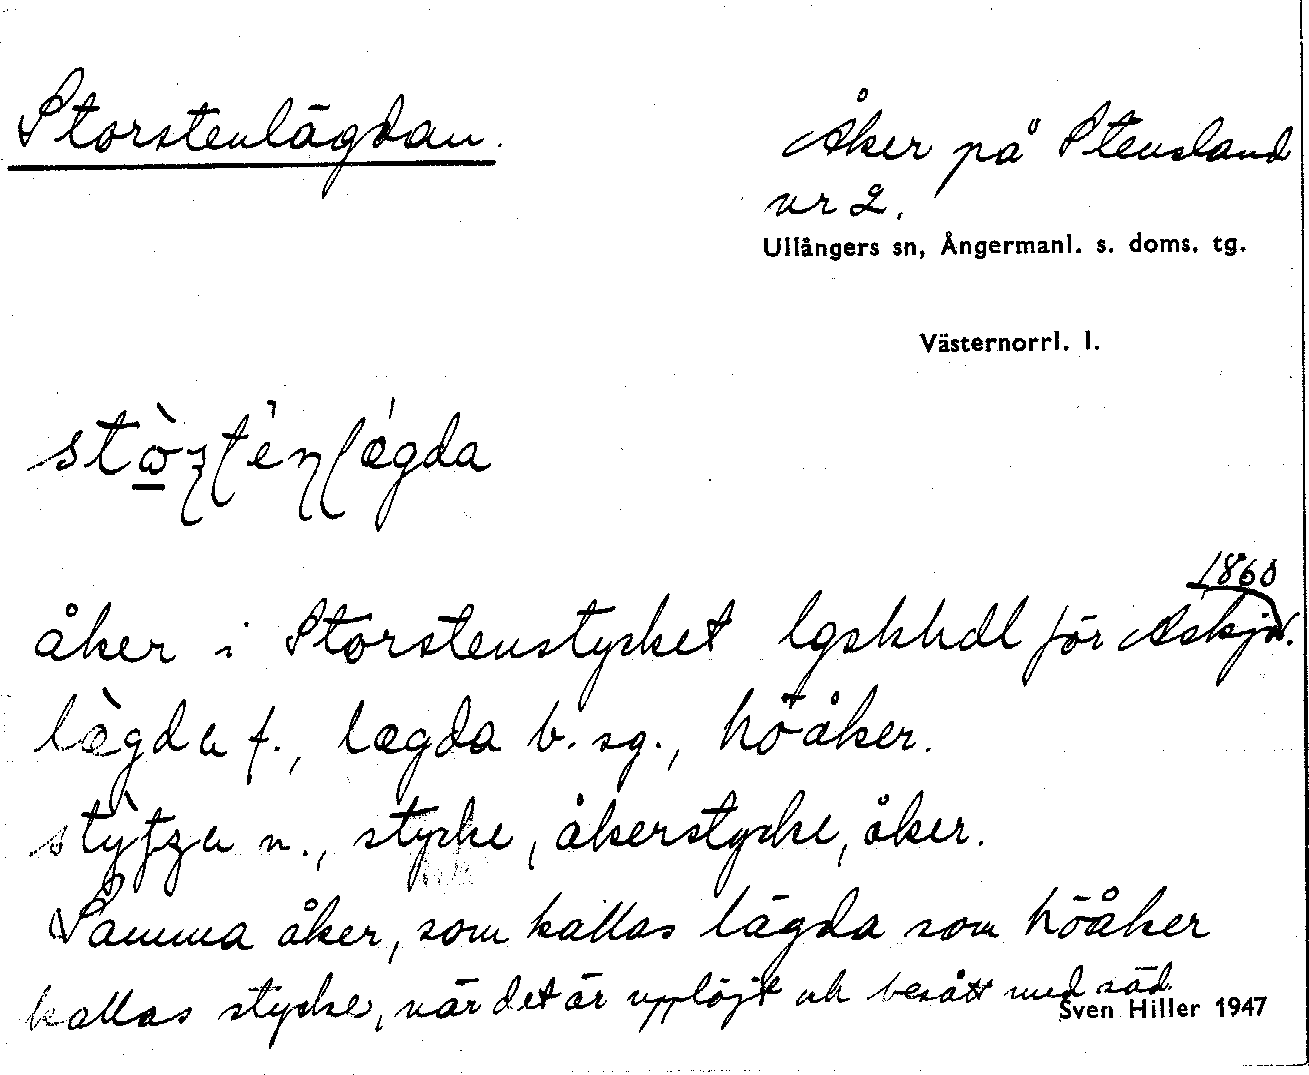 Storstenlägdan.
Åker på Stensland
nr 2.
Ullångers sn, Ångermanl. s. doms. tg.
Västernorrl. l.
åker i Storstenstycket lgskhdl för Askja. 1860
lægda f., lægda b. sg., höåker.
n., stycke, åkerstycke, åker.
Samma åker, som kallas lägda som höåker
kallas stycke, när det är upplöjt och besått med säd.
Sven Hiller 1947